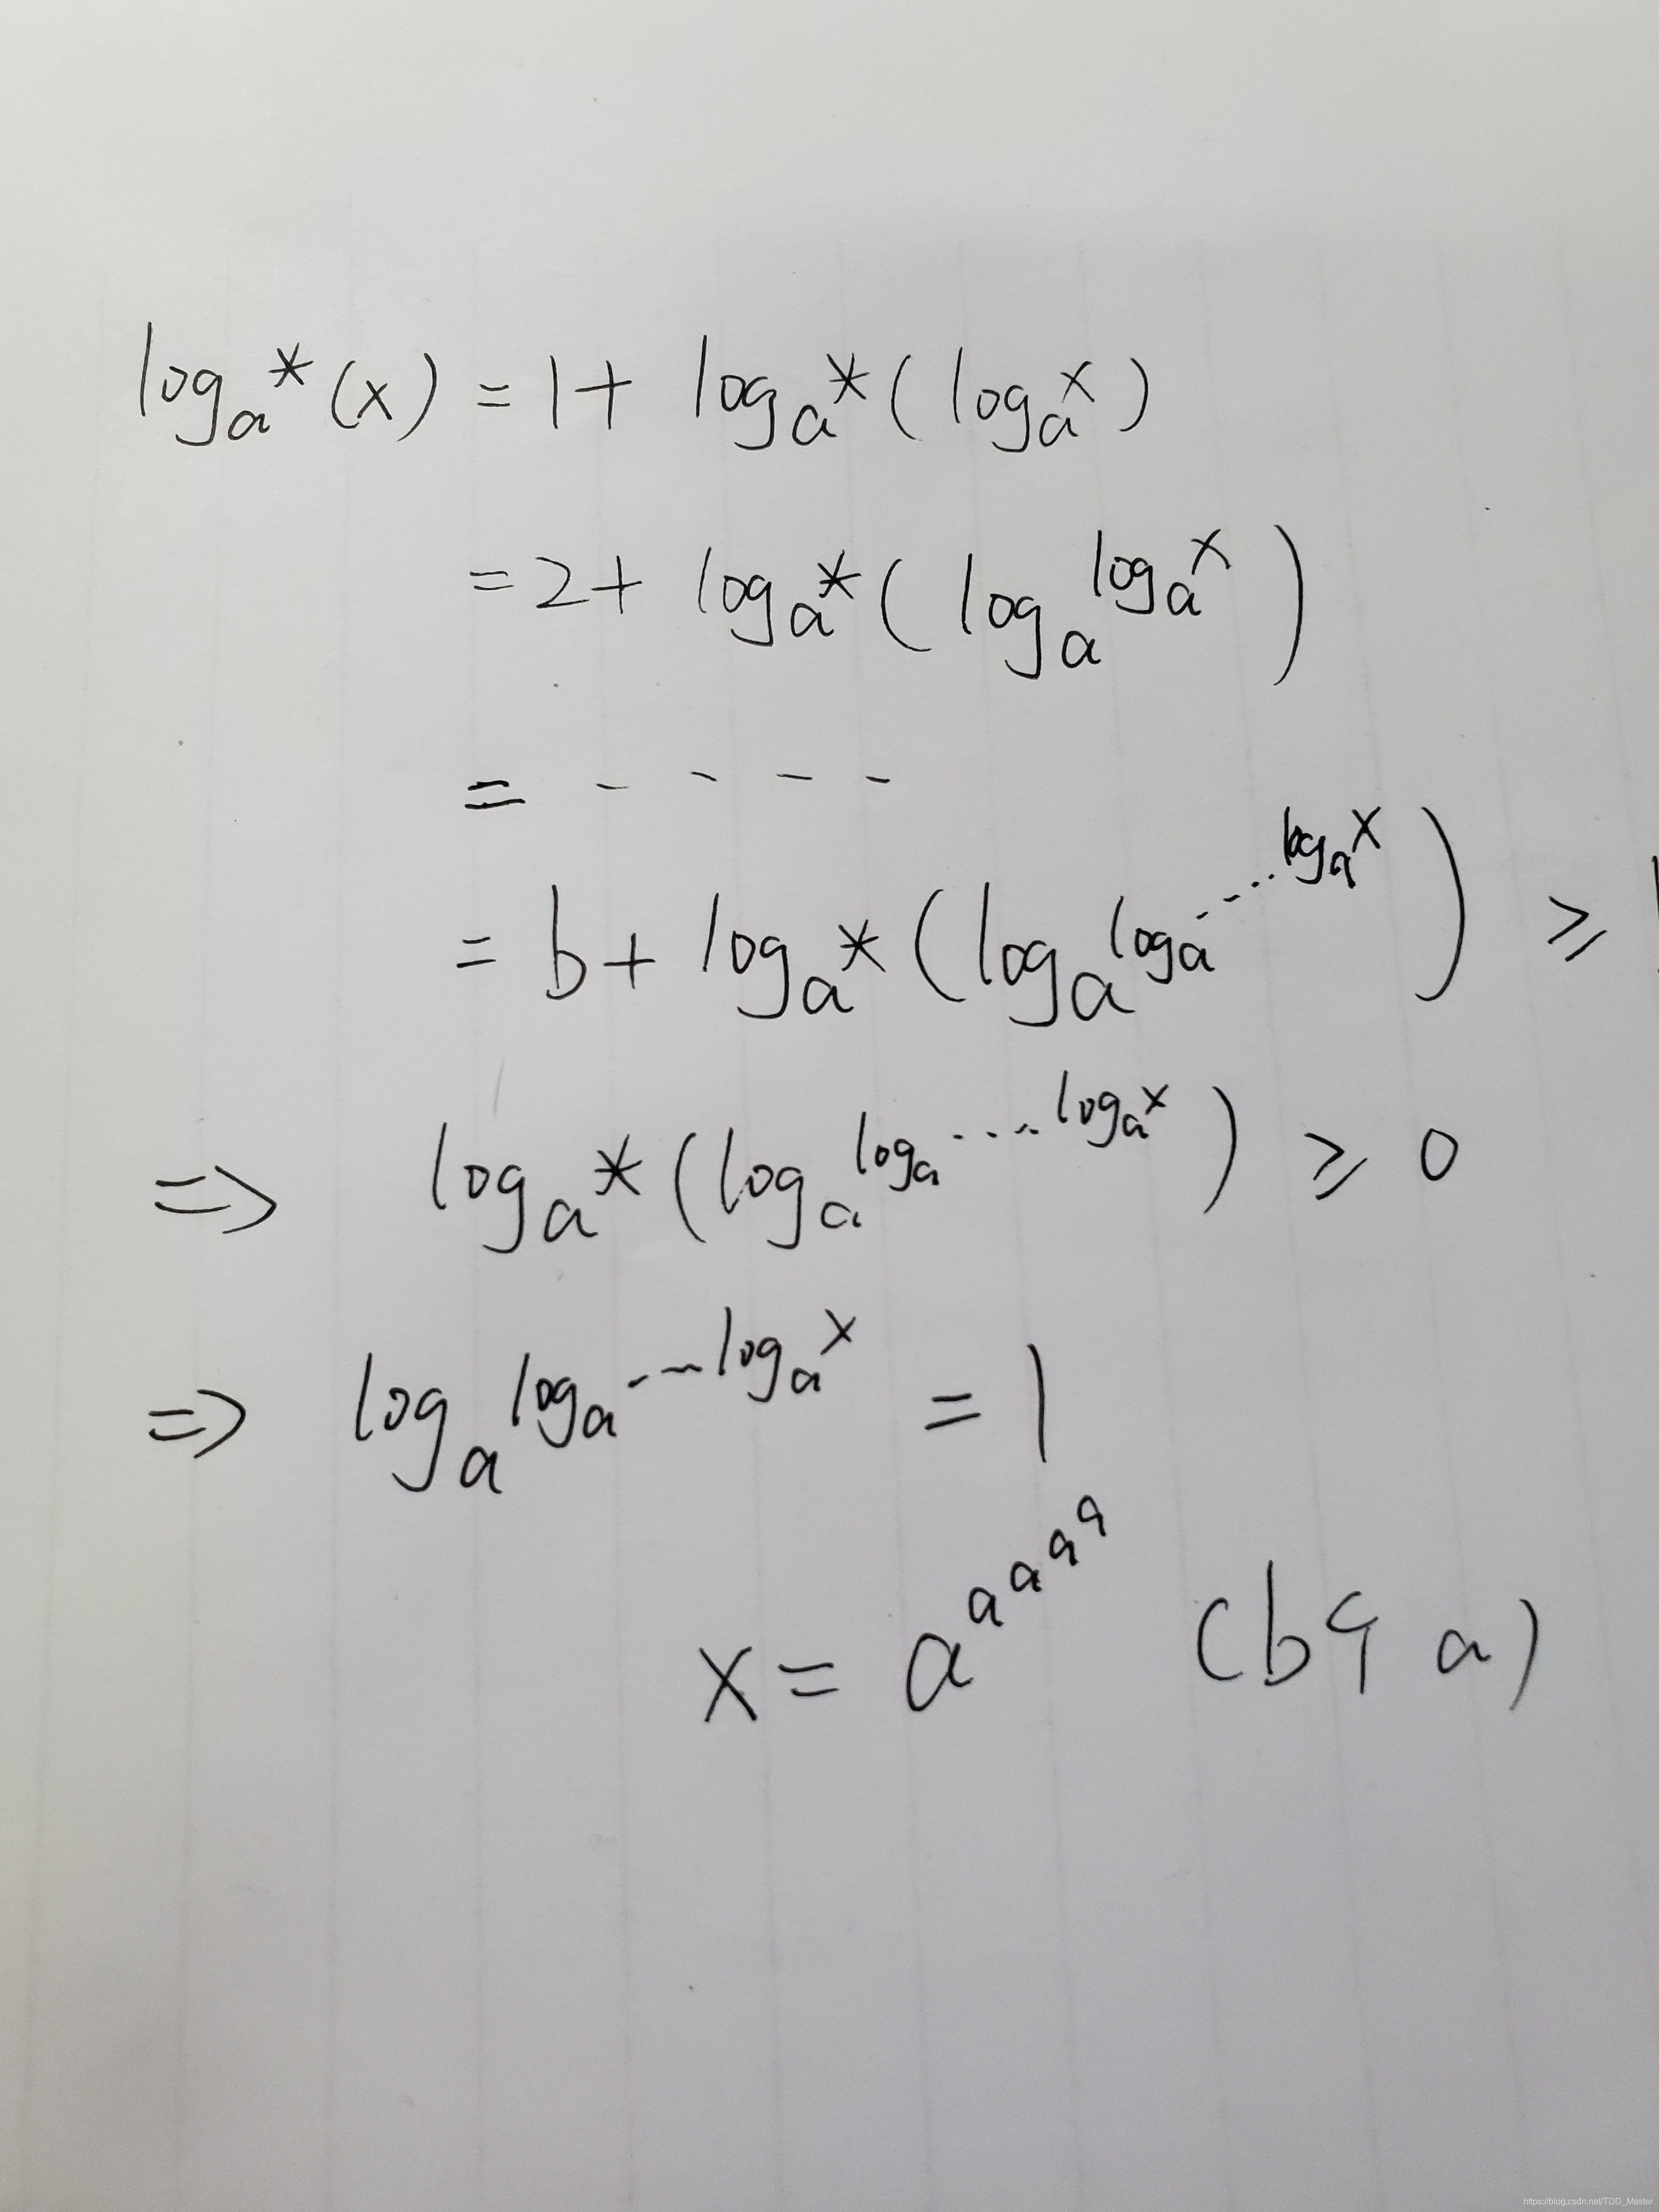 log_a*(x) = 1 + log_a*(log_a^x)
= 2 + log_a*(log_a^{log_a^x})
= - - - -
= b + log_a*(log_a^{log_a^{...^{log_a^x}}}) ≥
=> log_a*(log_a^{log_a^{....^{log_a^x}}}) ≥ 0
=> log_a^{log_a^{...^{log_a^x}}} = 1
x = a^{a^{a^{a^a}}} (b个 a)
https://blog.csdn.net/TDD_Master